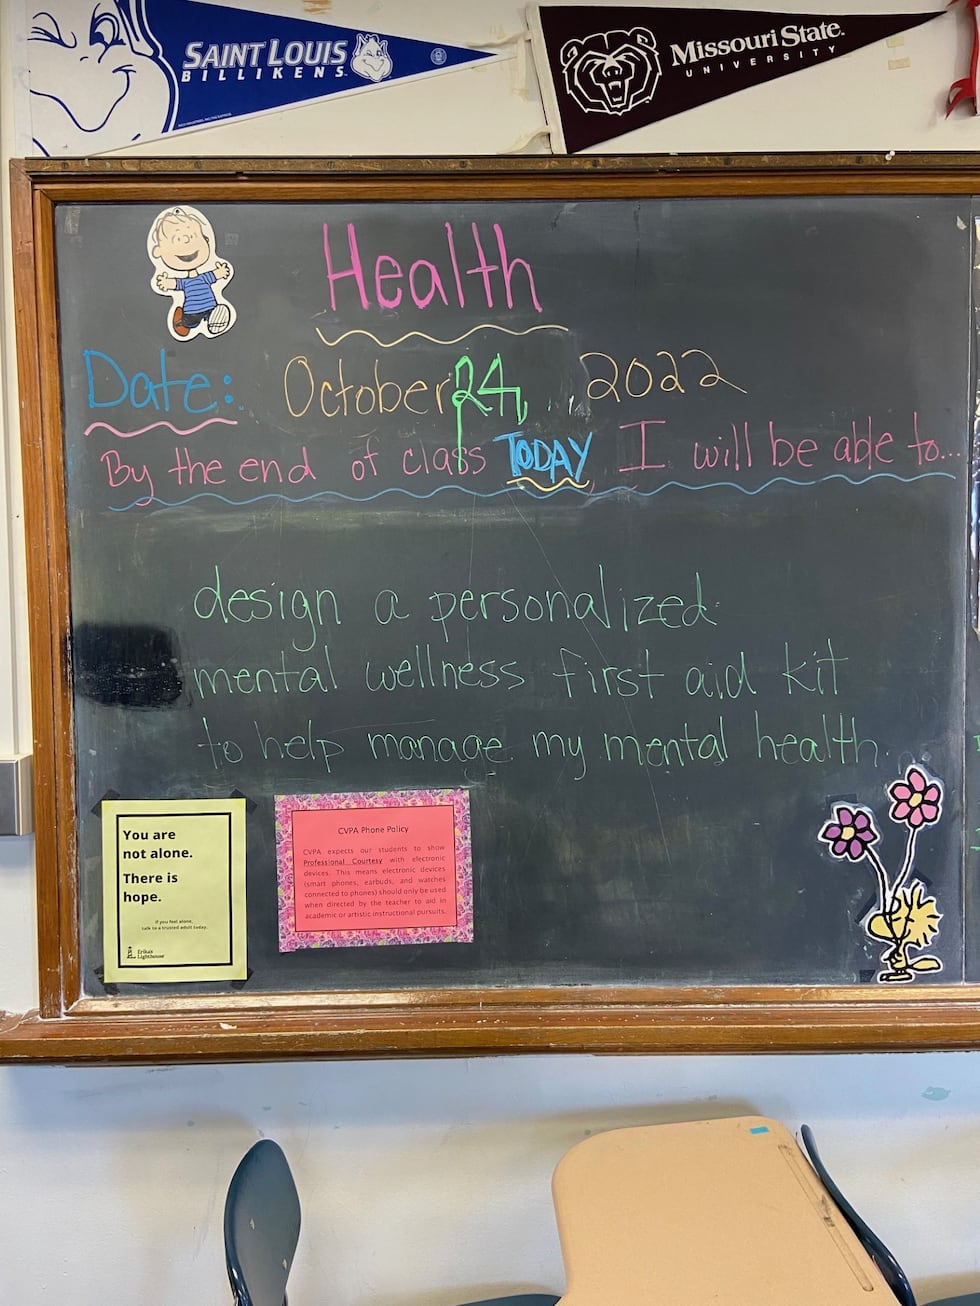 SAINT LOUIS
BILLIKENS.
Missouri State.
UNIVERSITY
Health
Date: October 24, 2022
By the end of class TODAY I will be able to...
design a personalized
mental wellness first aid kit
to help manage my mental health.
You are
not alone.
There is
hope.
If you feel alone,
talk to a trusted adult today.
Erika's
Lighthouse
CVPA Phone Policy
CVPA expects our students to show
Professional Courtesy with electronic
devices. This means electronic devices
(smart phones, earbuds, and watches
connected to phones) should only be used
when directed by the teacher to aid in
academic or artistic instructional pursuits.